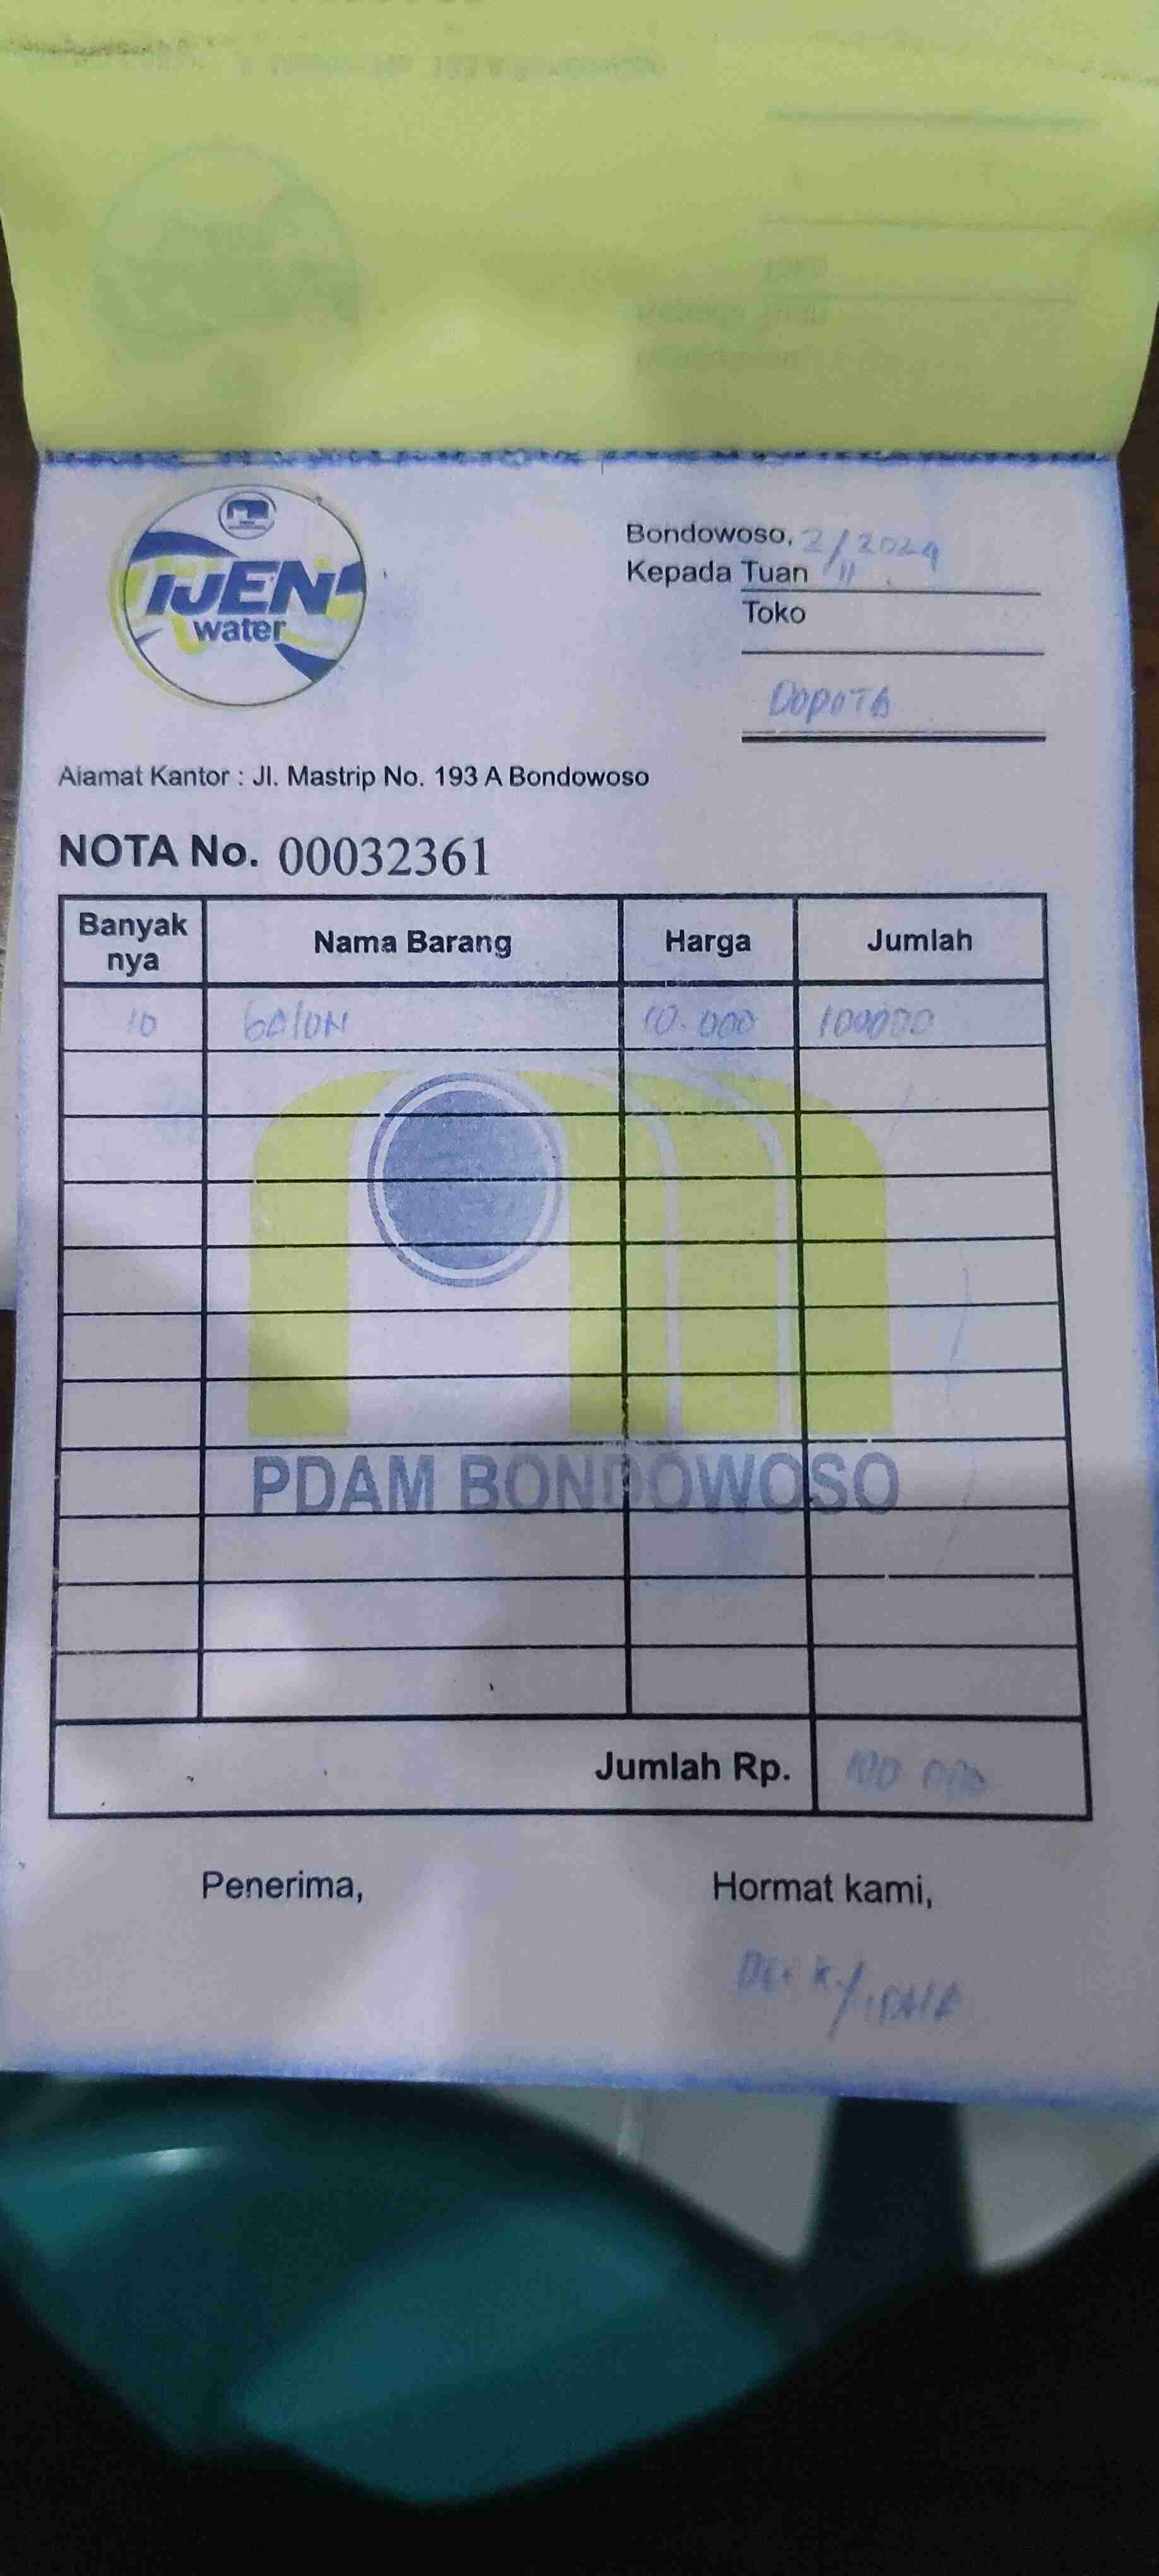 IJEN
water
Bondowoso, 2/11 2024
Kepada Tuan
Toko
DOPOTA
Alamat Kantor : Jl. Mastrip No. 193 A Bondowoso
NOTA No. 00032361
Banyak nya Nama Barang Harga Jumlah
10 GALON 10.000 100000
PDAM BONDOWOSO
Jumlah Rp. 100.000
Penerima, Hormat kami,